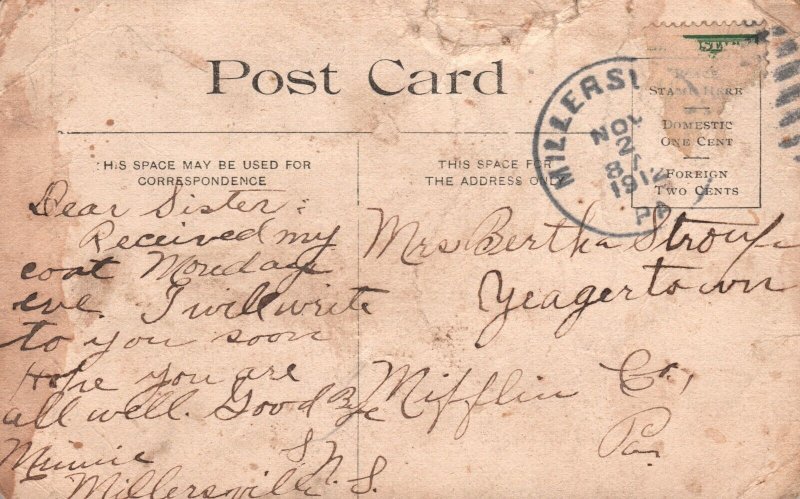 Post Card
HIS SPACE MAY BE USED FOR
CORRESPONDENCE
THIS SPACE FOR
THE ADDRESS ONLY
STAMP HERE
DOMESTIC
ONE CENT
FOREIGN
TWO CENTS
MILLERSV
NOV
21
8
1912
PA
Dear Sister:
Received my
coat Monday
eve. I will write
to you soon
Hope you are
all well. Good Bye
Minnie
Millersville S. N. S.
Mrs. Bertha
Yeagertown
Mifflin Co,
Pa.